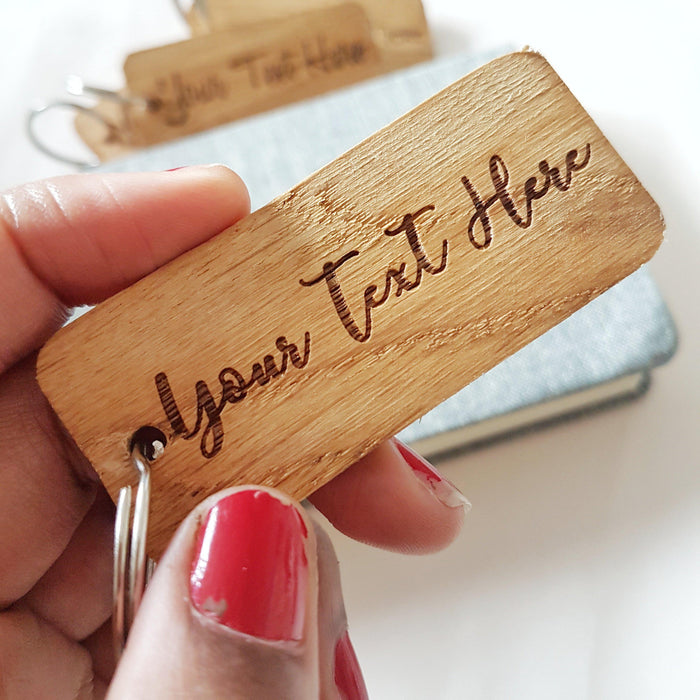 Your Text Here
Your Text Here